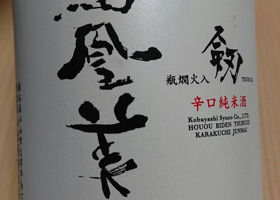 凰美
剱
TSURUGI
瓶燗火入
辛口純米酒
Kobayashi Syuzo Co., LTD.
HOUOU BIDEN TSURUGI
KARAKUCHI JUNMAI